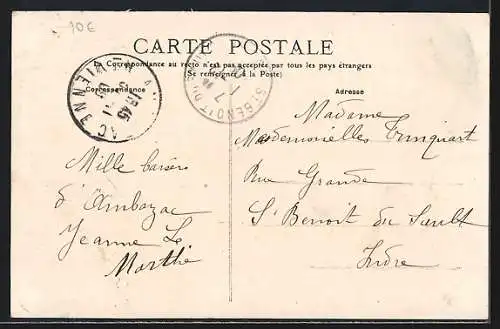 10€
CARTE POSTALE
La Correspondance au recto n'est pas acceptée par tous les pays étrangers
(Se renseigner à la Poste)
Correspondance
Adresse
ST BENOIT DU
18 45
Madame
Mesdemoiselles Trinquart
Rue Grande
St Benoit du Sault
Indre
Mille baisers
d'Ambazac
Jeanne &
Marthe